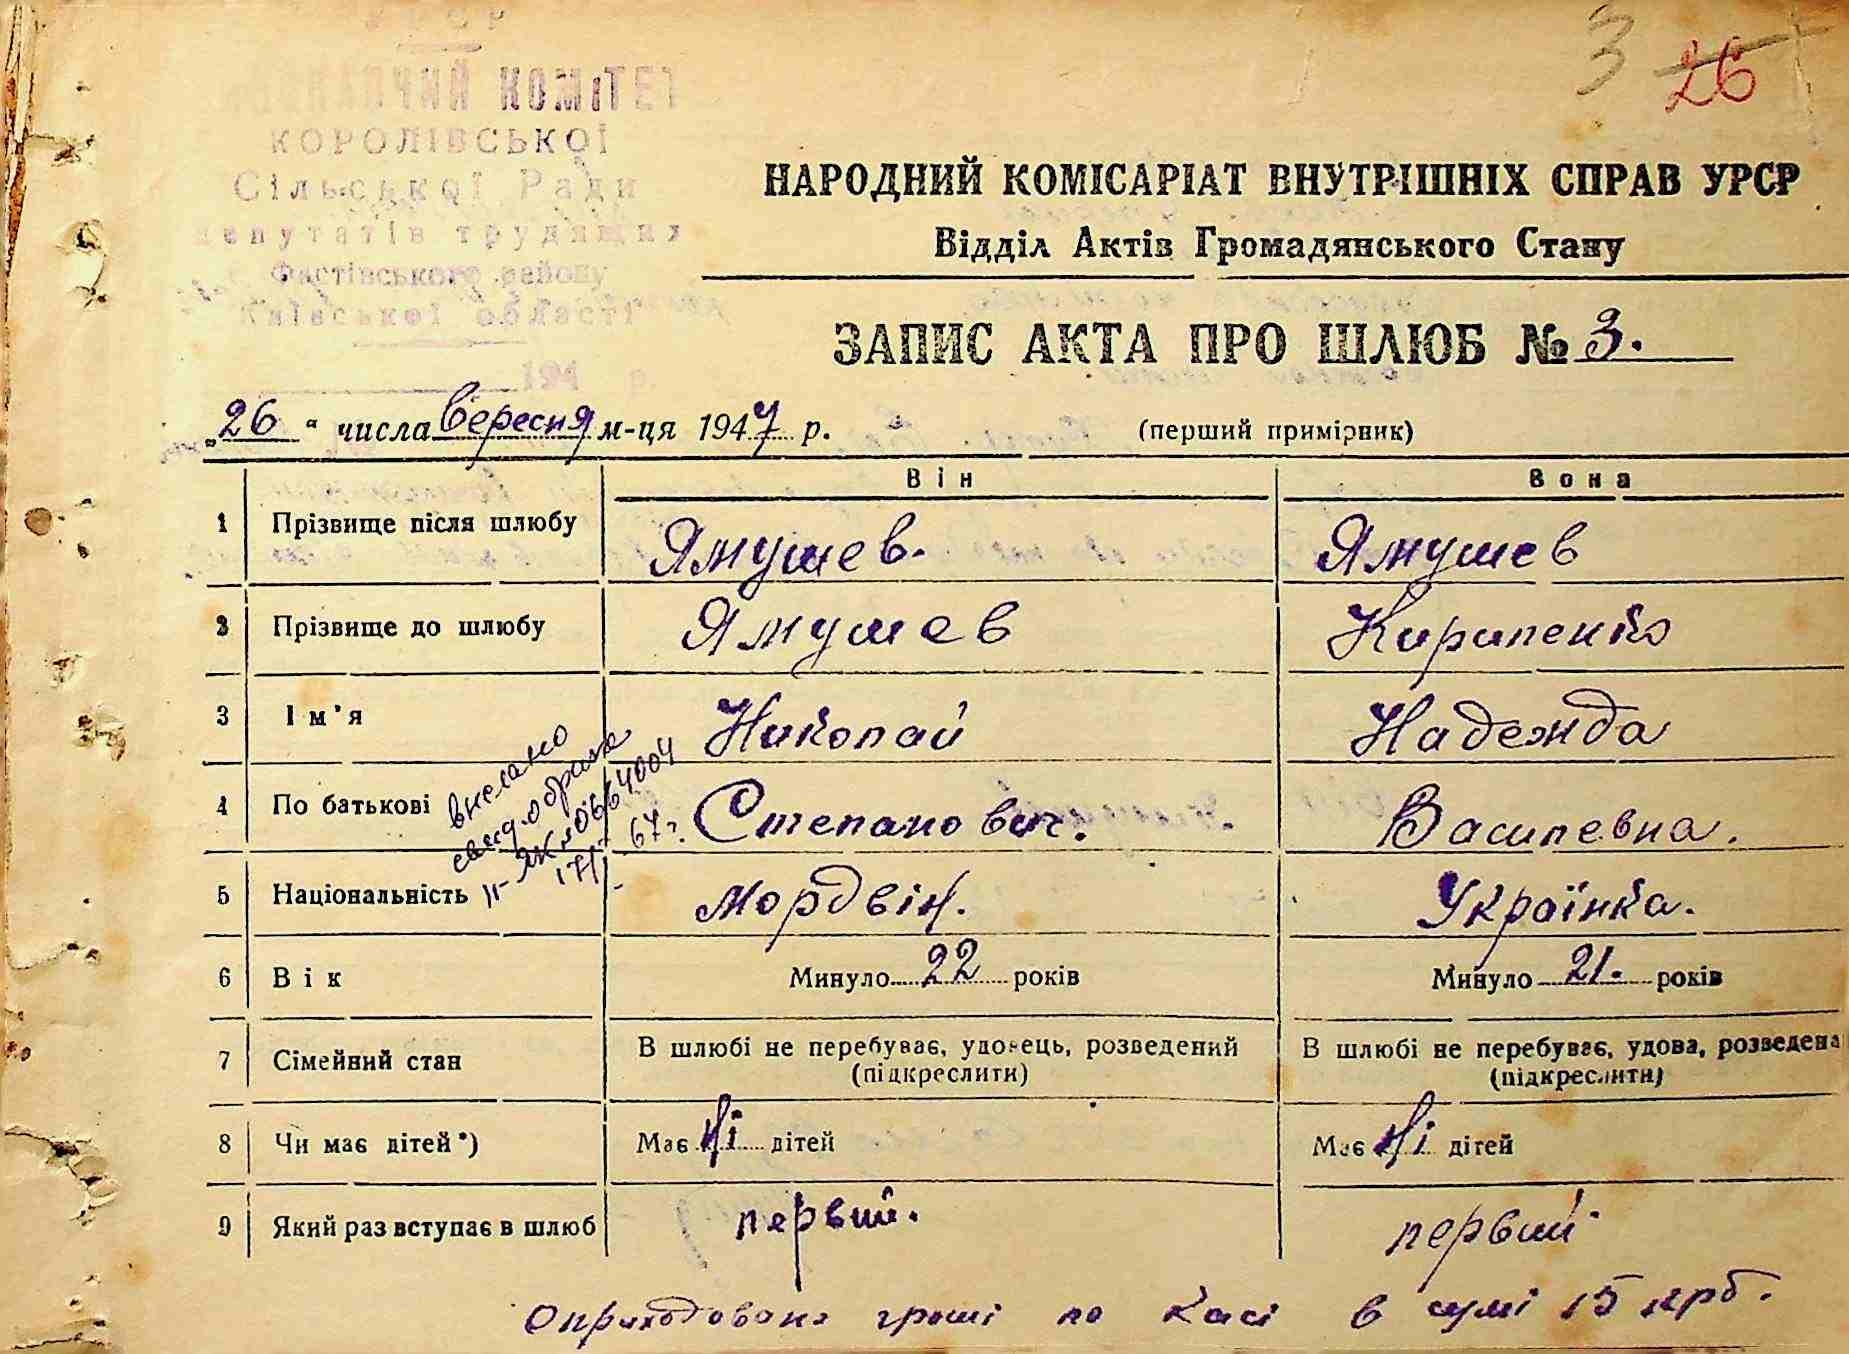 УРСР
ВИКОНАВЧИЙ КОМІТЕТ
КОРОЛІВСЬКОЇ
Сільської Ради
депутатів трудящих
Фастівського району
Київської області
194 р.
3 26
НАРОДНИЙ КОМІСАРІАТ ВНУТРІШНІХ СПРАВ УРСР
Відділ Актів Громадянського Стану
ЗАПИС АКТА ПРО ШЛЮБ № 3.
„26“ числа Вересня м-ця 1947 р. (перший примірник)
Він Вона
1 Прізвище після шлюбу Ямушев. Ямушев
2 Прізвище до шлюбу Ямушев Кириленко
3 Ім'я Николай Надежда
4 По батькові Степанович. Василевна.
5 Національність мордвін. Українка.
6 Вік Минуло 22 років Минуло 21. років
7 Сімейний стан В шлюбі не перебуває, удовець, розведений (підкреслити) В шлюбі не перебуває, удова, розведена (підкреслити)
8 Чи має дітей*) Має ні дітей Має ні дітей
9 Який раз вступає в шлюб первий. первий
свид. о браке
67г.
Оприходовано гроші по касі в сумі 15 крб.